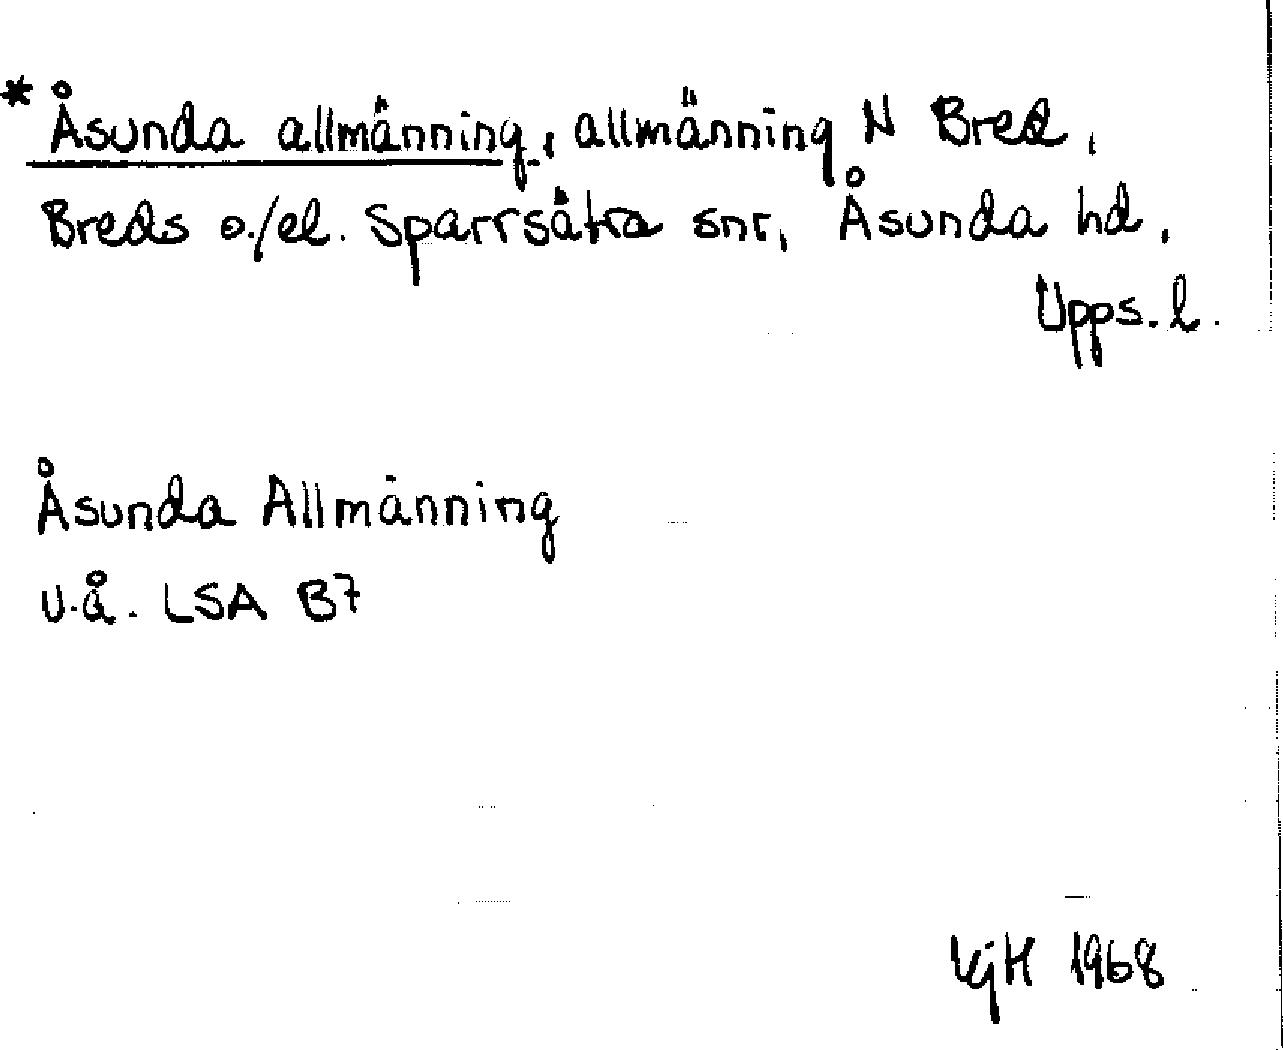 * Åsunda allmänning, allmänning N Bred,
Breds o./el. Sparrsätra snr, Åsunda hd,
Upps. l.
Åsunda Allmänning
u.å. LSA B7
1968